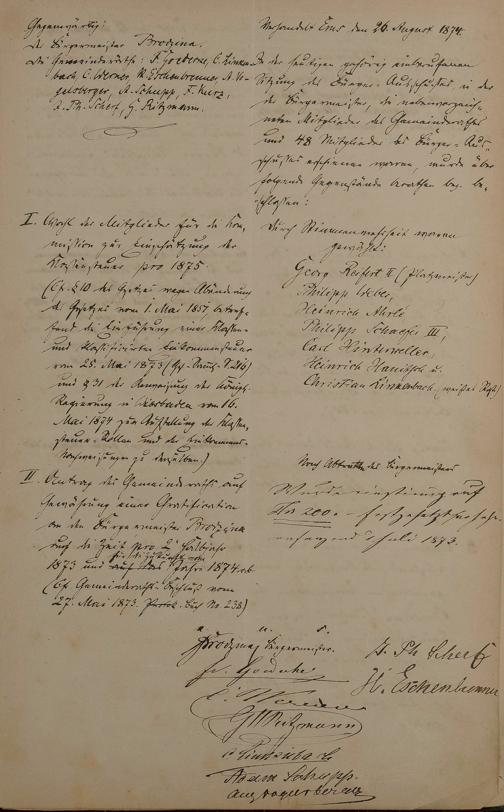 Gegenwärtig:
Der Bürgermeister Brodzina.
Die Gemeinderäthe: F. Goedecke, C. Linken-
bach, C. Werner, H. Eschenbrenner, A. Vo-
gelsberger, A. Schupp, F. Kurz,
J. Ph. Scherf, G. Ritzmann.
Verhandelt Ems den 26. August 1874
In der heutigen gehörig anberaumten
Sitzung des Bürger-Ausschusses, in der
der Bürgermeister, die nebenverzeich-
neten Mitglieder des Gemeinderathes
und 48 Mitglieder des Bürger-Aus-
schusses erschienen waren, wurde über
folgende Gegenstände berathen bez. be-
schlossen:
I. Wahl der Mitglieder für die Kom-
mission zur Einschätzung der
Klassensteuer pro 1875
(Cf. § 10 des Gesetzes wegen Abänderung
d. Gesetzes vom 1. Mai 1851, betref-
fend die Einführung einer Klassen-
und klassifizirten Einkommensteuer
vom 25. Mai 1873 S. 216)
und § 31 der Anweisung der Königl.
Regierung in Wiesbaden vom 16.
Mai 1874 zur Aufstellung der Klassen-
steuer-Rollen und der Einkommens-
Nachweisungen zu derselben.)
Durch Stimmenmehrheit waren
gewählt:
Georg Reifert II
Philipp Weber,
Heinrich Ahrle
Philipp Schaefer III,
Carl Hinterweller,
Heinrich Hanisch u.
Christian Linkenbach
II. Antrag des Gemeinderaths auf
Gewährung einer Gratification
an den Bürgermeister Brodzina
auf die Zeit pro 2. Halbjahr
1873 und auf das Jahr 1874 ab
(Cf. Gemeinderaths-Beschluß vom
27. Mai 1873. Protok. Buch No. 238)
Nach Abtreten des Bürgermeisters
Wurde einstimmig auf
200. festgesetzt
anfangend 1 Juli 1873.
a. u. s.
Brodzina, Bürgermeister.
J. Ph. Scherf
Fr. Goedecke
H. Eschenbrenner
C. Werner
G Ritzmann
C Linkenbach
Adam Schupp.
Aug Vogelsberger